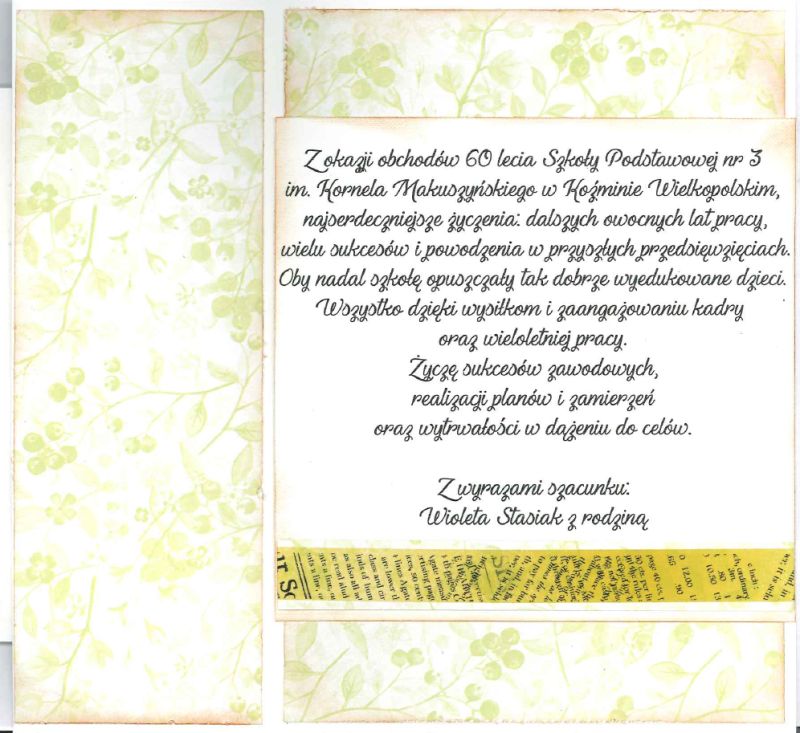 Z okazji obchodów 60 lecia Szkoły Podstawowej nr 3
im. Kornela Makuszyńskiego w Koźminie Wielkopolskim,
najserdeczniejsze życzenia: dalszych owocnych lat pracy,
wielu sukcesów i powodzenia w przyszłych przedsięwzięciach.
Oby nadal szkołę opuszczały tak dobrze wyedukowane dzieci.
Wszystko dzięki wysiłkom i zaangażowaniu kadry
oraz wieloletniej pracy.
Życzę sukcesów zawodowych,
realizacji planów i zamierzeń
oraz wytrwałości w dążeniu do celów.
Z wyrazami szacunku:
Wioleta Stasiak z rodziną